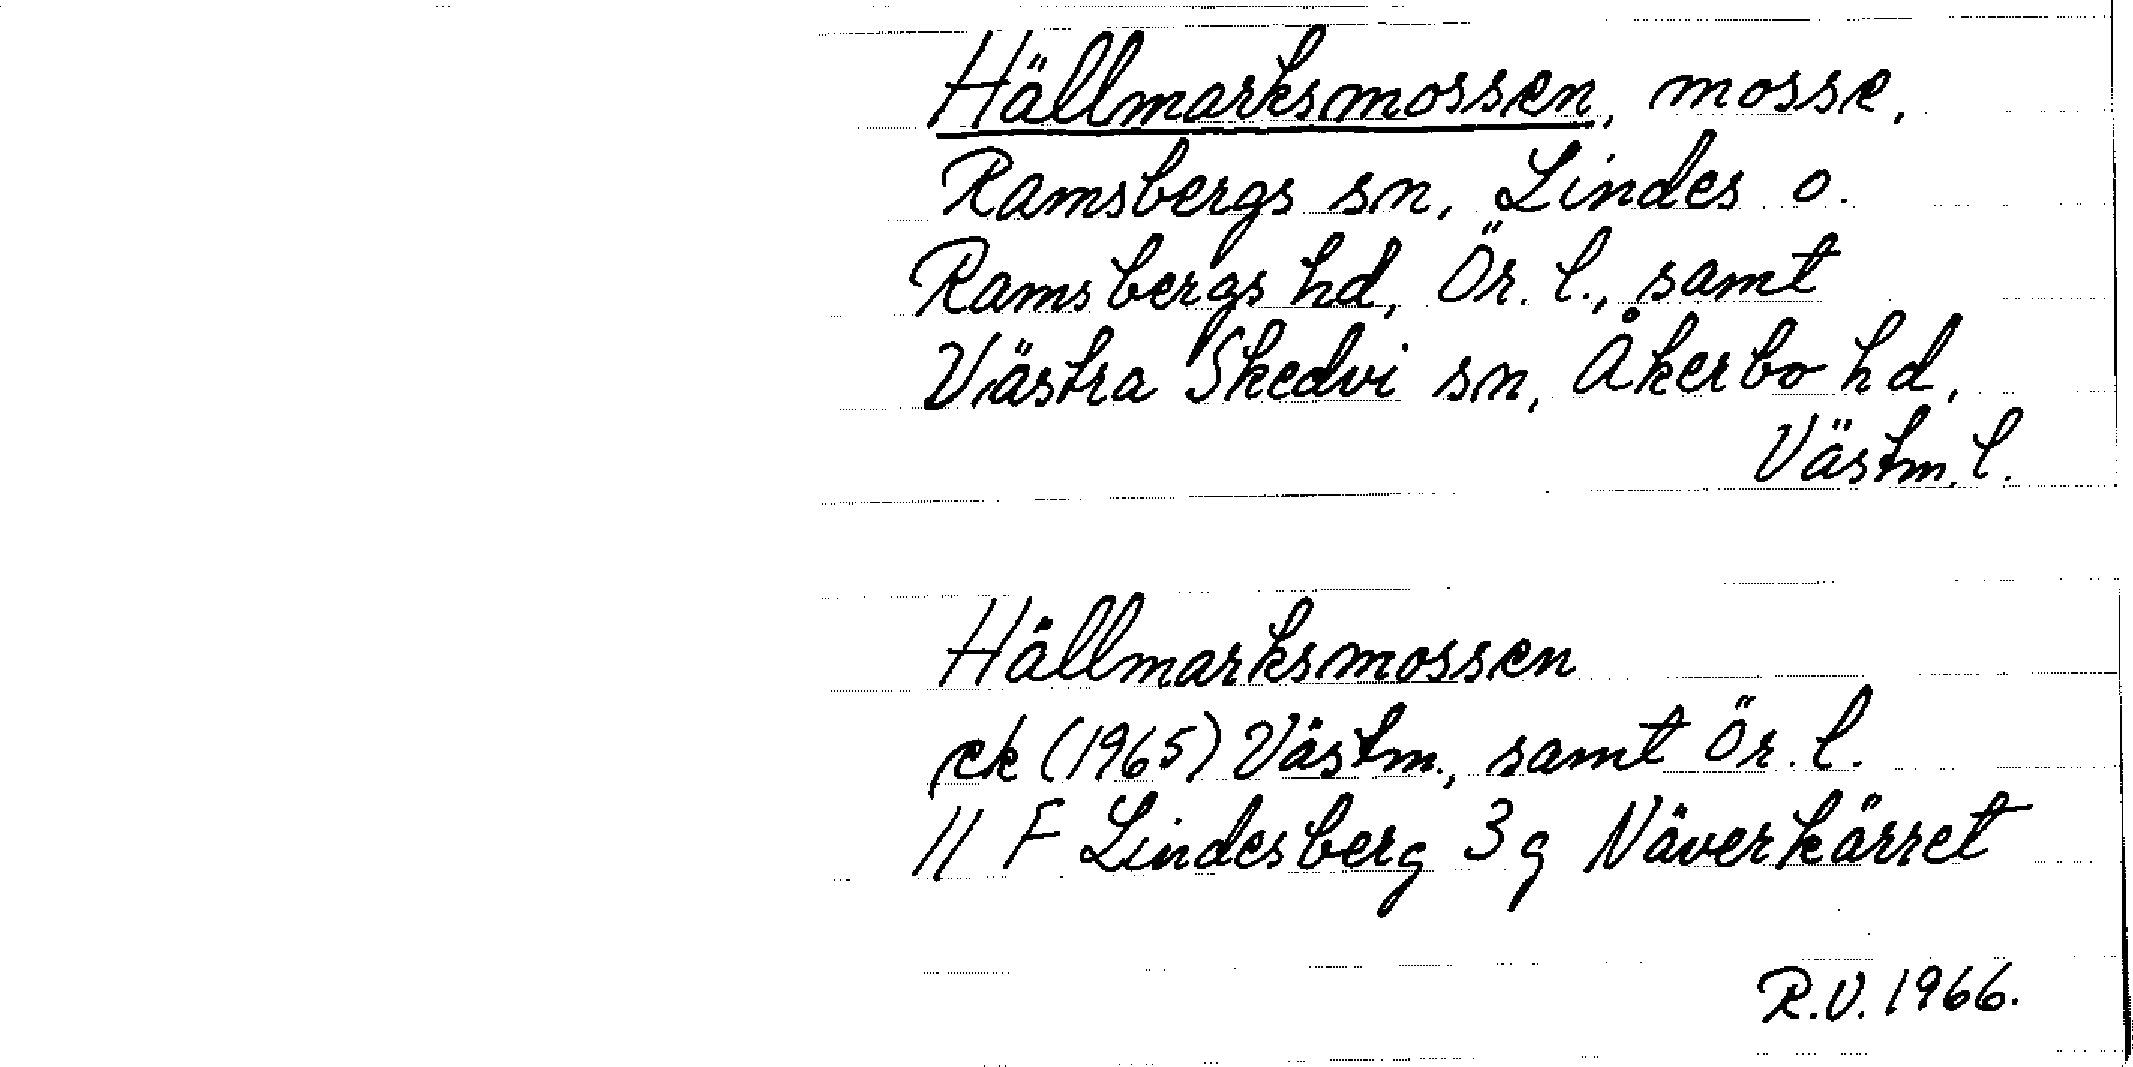 Hällmarksmossen, mosse,
Ramsbergs sn, Lindes o.
Ramsbergs hd, Ör. l., samt
Västra Skedvi sn, Åkerbo hd,
Västm. l.
Hällmarksmossen
ek (1965) Västm., samt Ör. l.
11 F Lindesberg 3g Näverkärret
R.V. 1966.